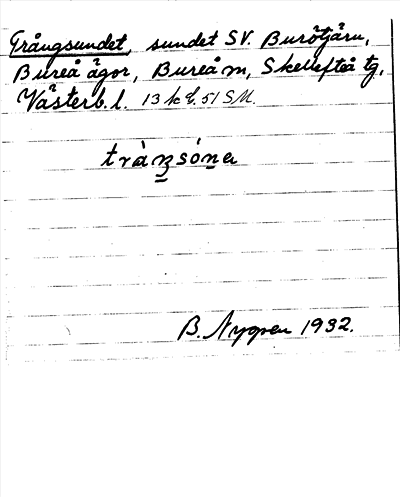 Trångsundet, sundet SV. Burötjärn,
Bureå ägor, Bureå sn, Skellefteå tg,
Västerb. l. 13 k 8. 51 SM.
tràŋsóna
B. Nygren 1932.